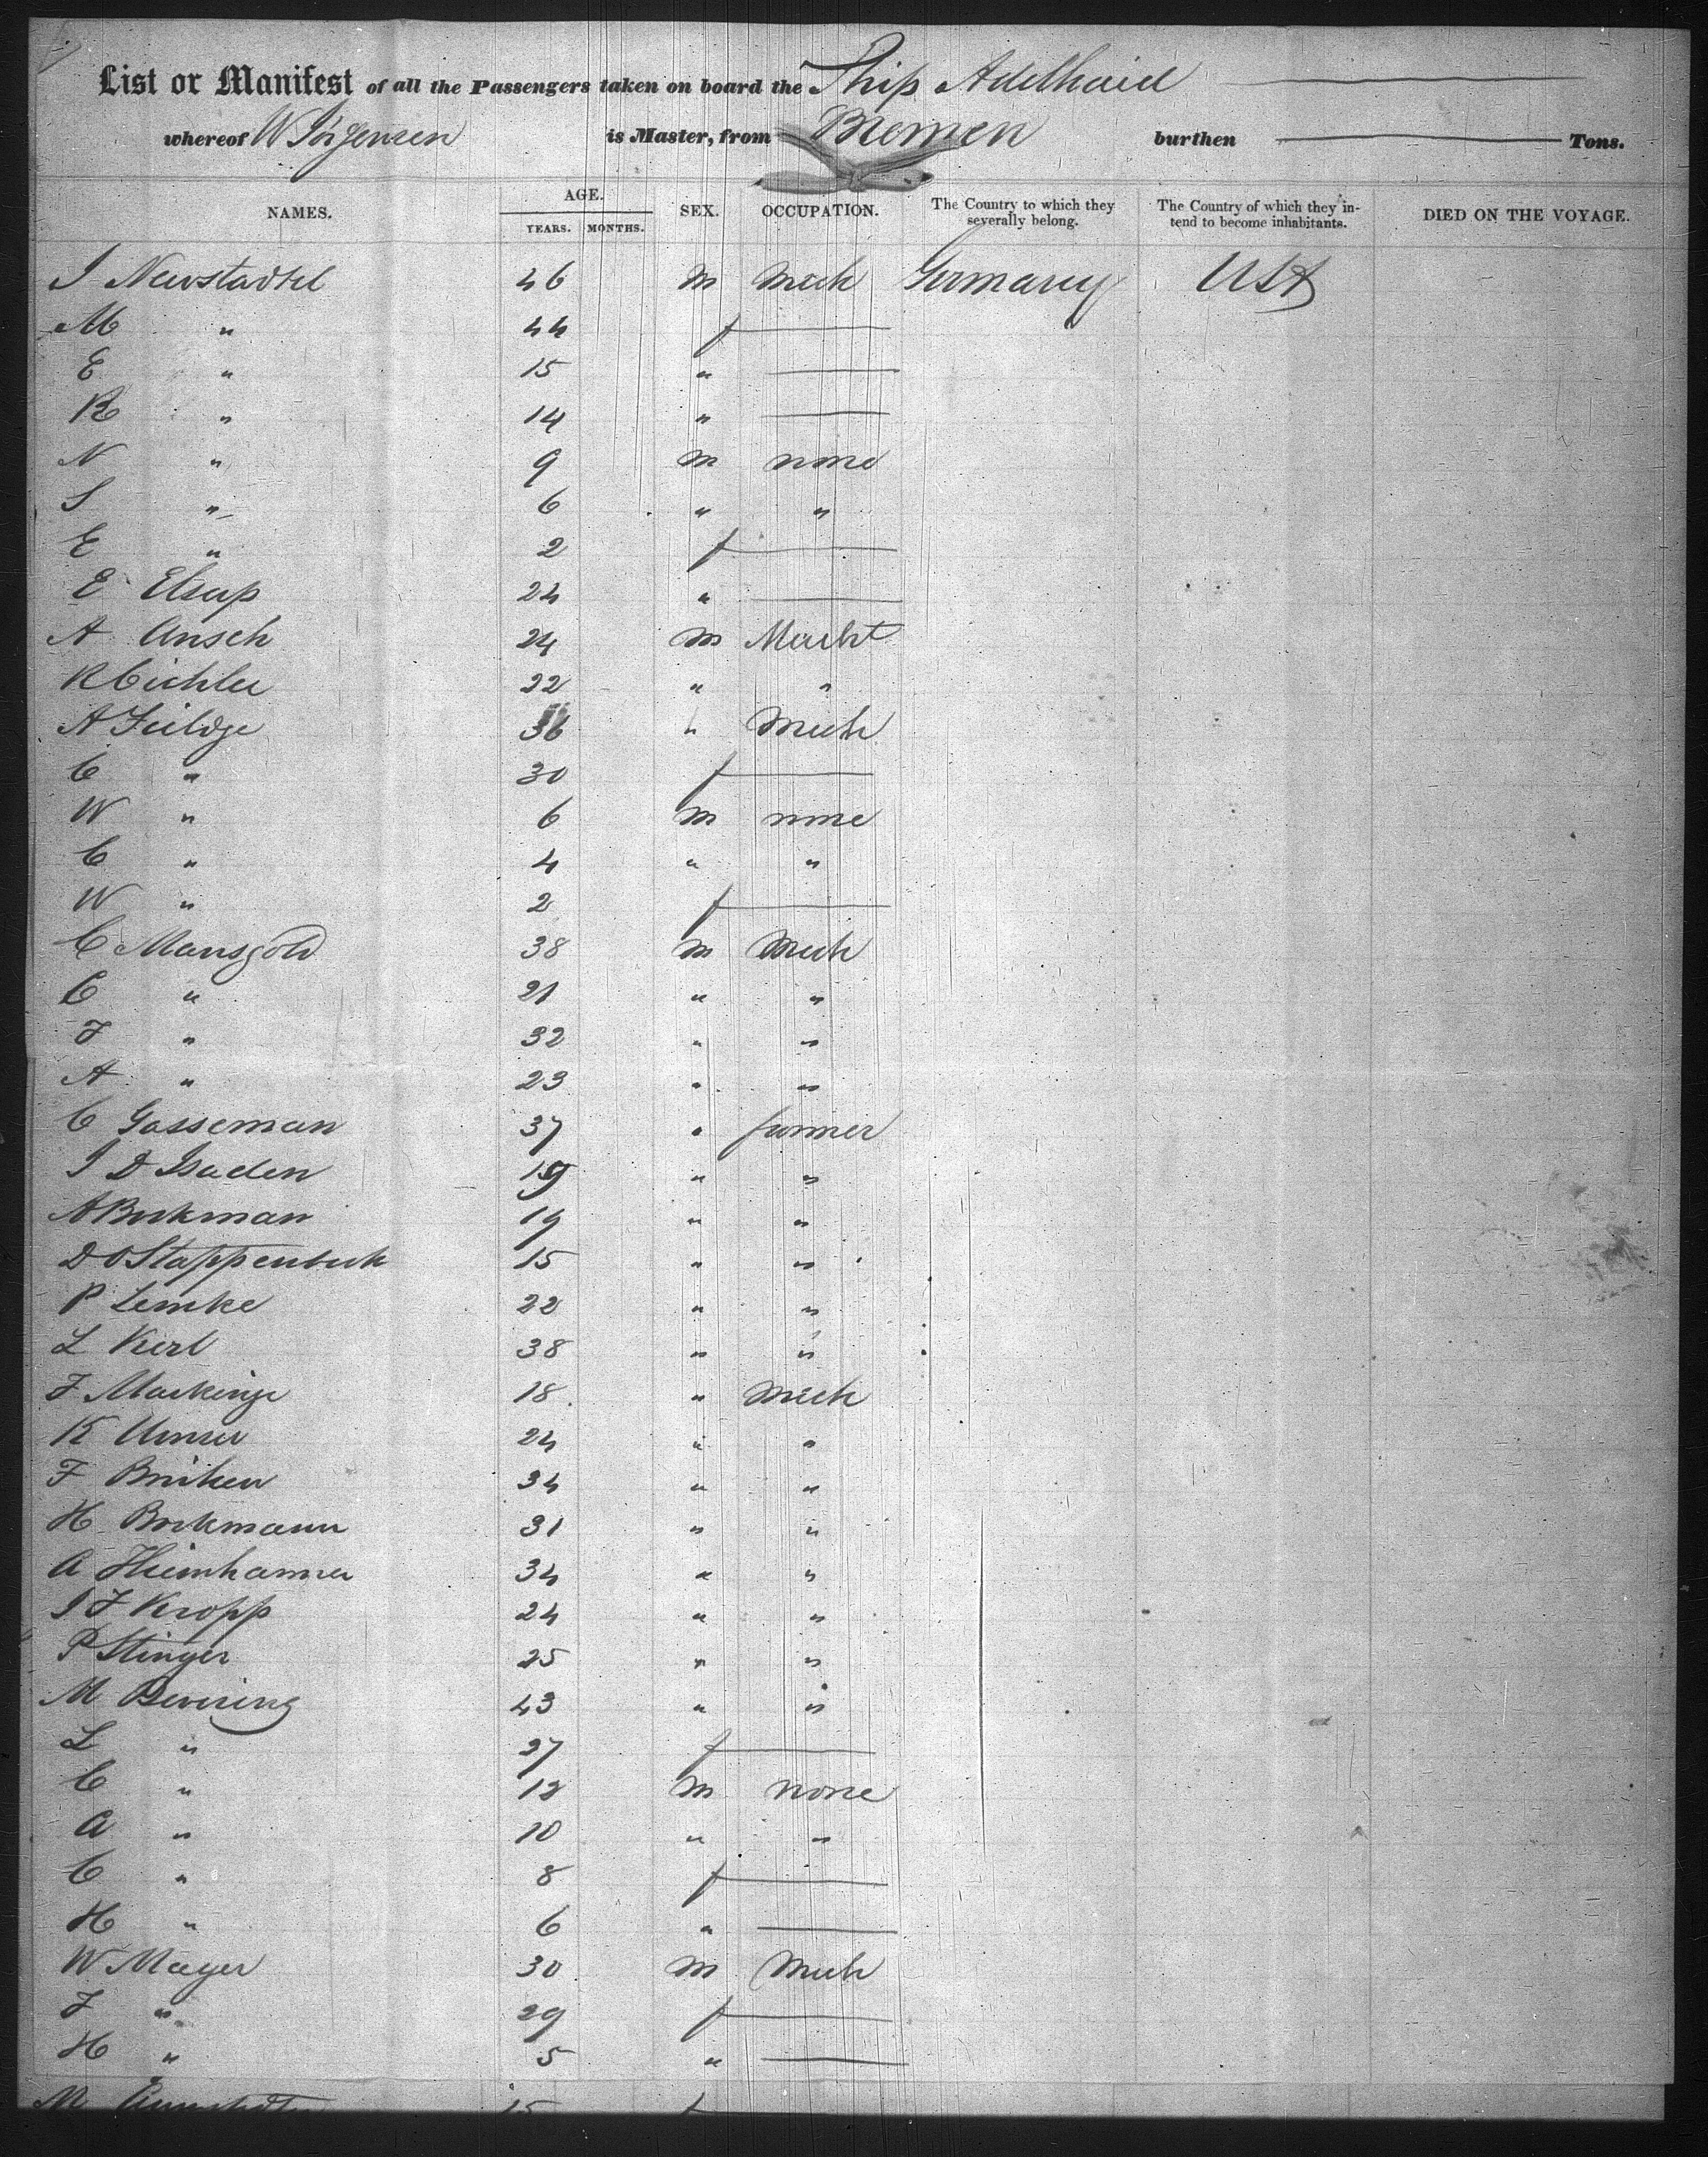 List or Manifest of all the Passengers taken on board the Ship Adelhaid
whereof W Jörgensen is Master, from Bremen burthen Tons.
NAMES. AGE. YEARS. MONTHS. SEX. OCCUPATION. The Country to which they severally belong. The Country of which they intend to become inhabitants. DIED ON THE VOYAGE.
J Neustadtel 46 m Mech Germany USA
M " 44 f
E " 15 "
R " 14 "
N " 9 m none
S " 6 " "
E " 2 f
E 24 "
A Ansch 24 m Mercht
R Eichler 22 " "
A 36 " Mech
C " 30 f
W " 6 m none
C " 4 " "
W " 2 f
C Mansgold 38 m Mech
C " 21 " "
F " 32 " "
A " 23 " "
C Gasseman 37 " farmer
J D 19 " "
A Beckman 19 " "
D O Stappenbeck 15 " "
P Lemke 22 " "
L Kerl 38 " "
F 18 " Mech
K 24 " "
F 34 " "
H 31 " "
A 34 " "
J F Kropp 24 " "
P Stinger 25 " "
M Bevering 43 " "
L " 27 f
C " 12 m none
A " 10 " "
C " 8 f
H " 6 "
W Mayer 30 m Mech
F " 29 f
H " 5 "
M 15 f